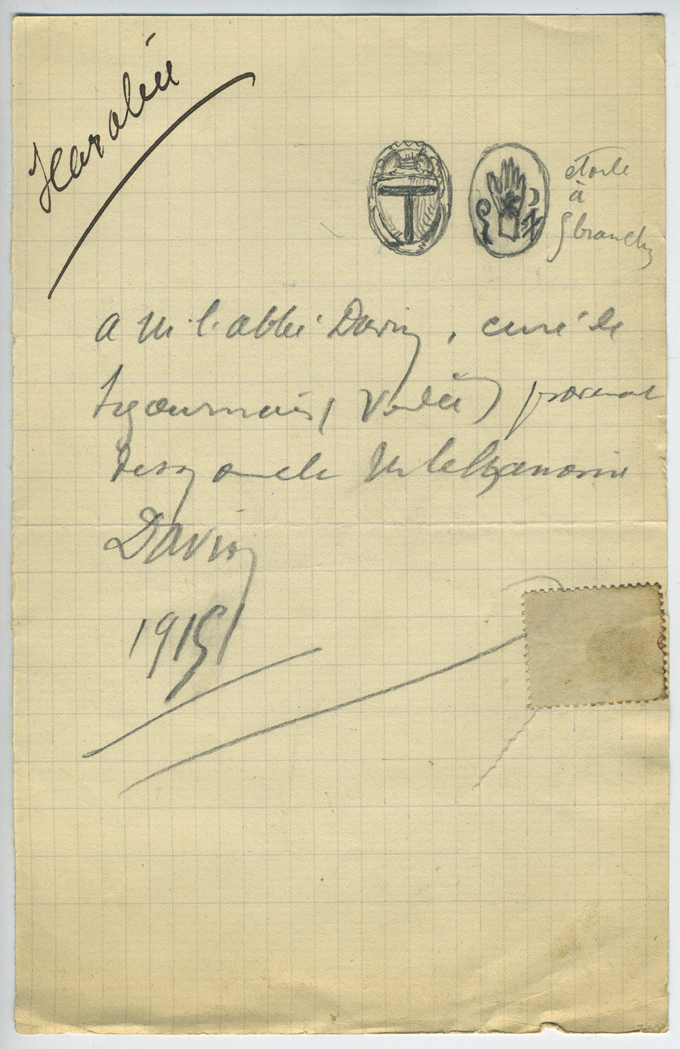 étoile
à
5 branches
A M. l'abbé Davin, curé de
Sigournais (Vendée)
de son oncle M. le Chanoine
Davin
1915